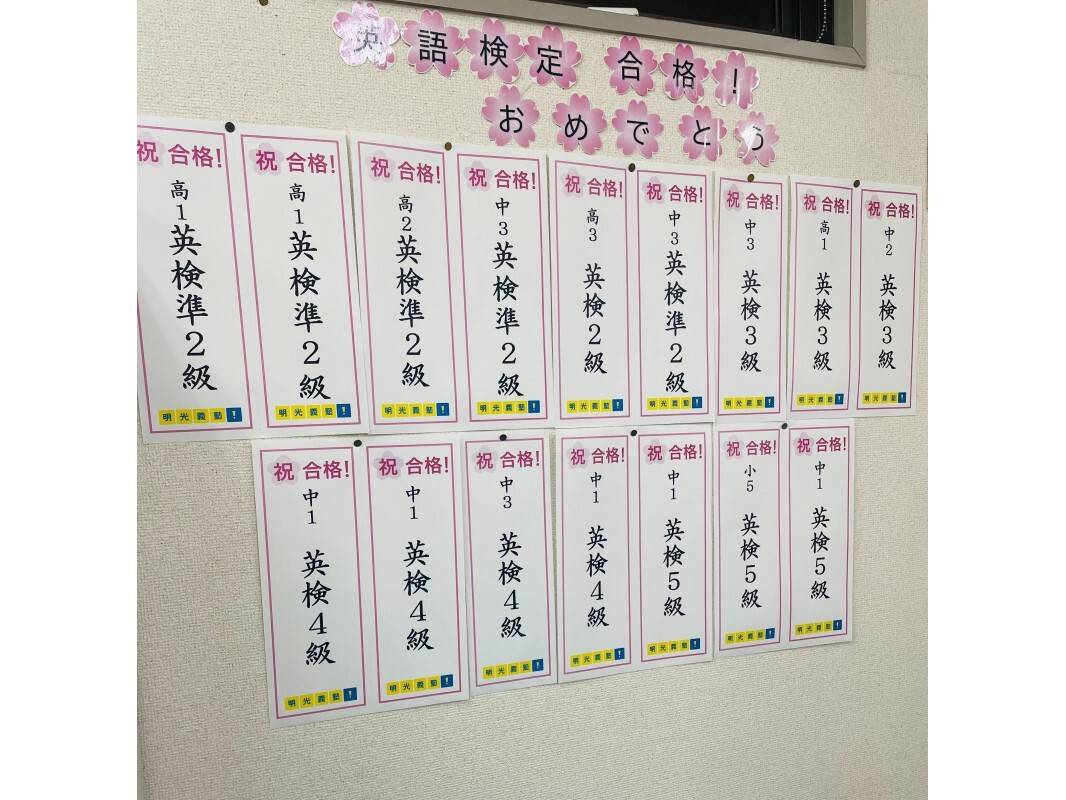 英語検定 合格!
おめでとう
祝 合格!
高1英検準2級
明光義塾!
祝 合格!
高1英検準2級
明光義塾!
祝 合格!
高2英検準2級
明光義塾!
祝 合格!
中3英検準2級
明光義塾!
祝 合格!
高3 英検2級
明光義塾!
祝 合格!
中3英検準2級
明光義塾!
祝 合格!
中3 英検3級
明光義塾!
祝 合格!
高1 英検3級
明光義塾!
祝 合格!
中2 英検3級
明光義塾!
祝 合格!
中1 英検4級
明光義塾!
祝 合格!
中1 英検4級
明光義塾!
祝 合格!
中3 英検4級
明光義塾!
祝 合格!
中1 英検4級
明光義塾!
祝 合格!
中1 英検5級
明光義塾!
祝 合格!
小5 英検5級
明光義塾!
祝 合格!
中1 英検5級
明光義塾!